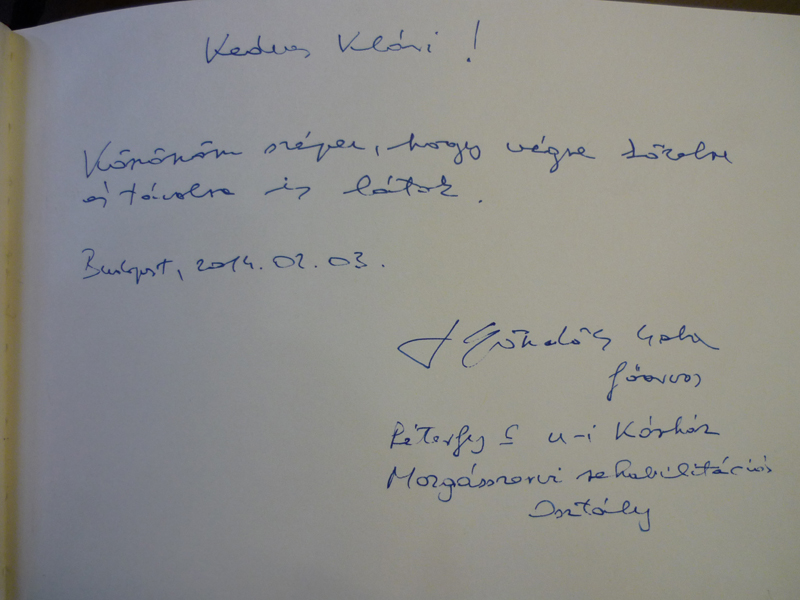 Kedves Klári!
Köszönöm szépen, hogy végre közelre
és távolra is látok.
Budapest, 2014. 02. 03.
főorvos
Péterfy S u-i Kórház
Mozgásszervi rehabilitációs
Osztály